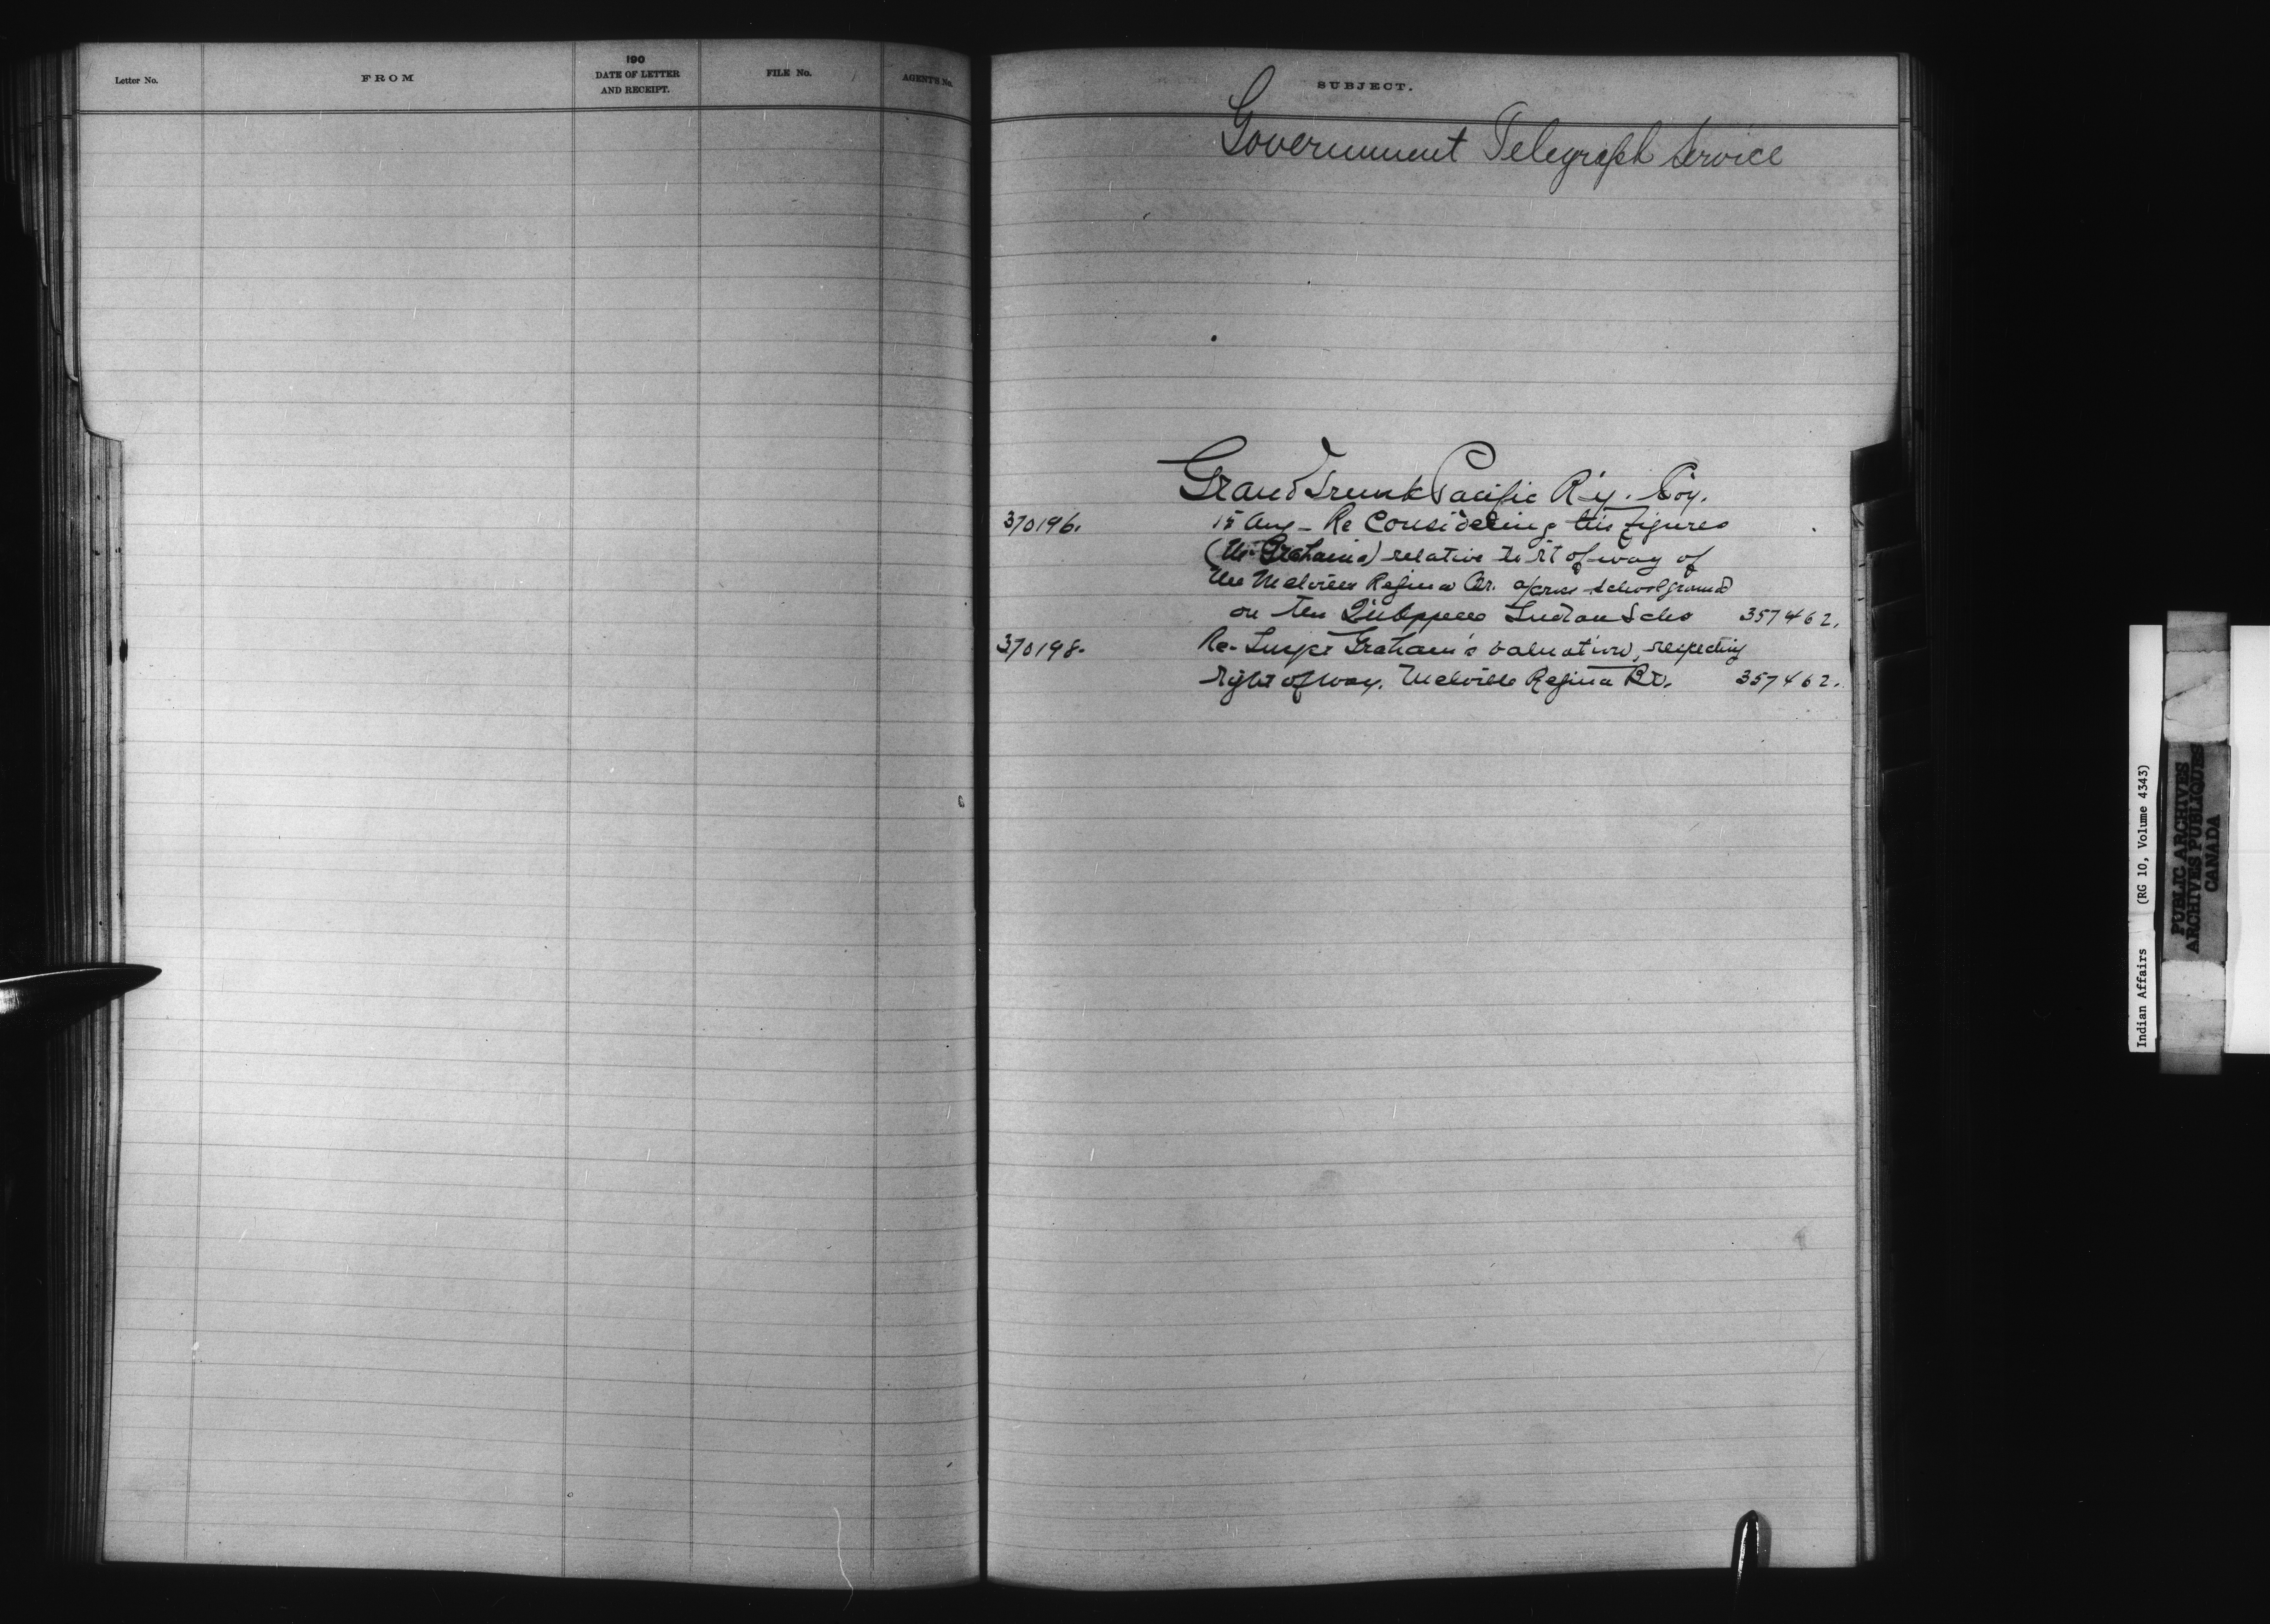 Letter No.
FROM
190
DATE OF LETTER
AND RECEIPT.
FILE No.
AGENTS No.
SUBJECT.
Government Telegraph Service
Grand Trunk Pacific R'y. Coy.
370196. 15 Aug - Re Considering his figures
(Mr Grahams) relative to rt of way of
the Melville Regina Br. across school ground
on the Qu'appelle Indian Scho 357462.
370198. Re- Inspr Graham's valuation, respecting
right of way. Melville Regina Br. 357462.
Indian Affairs (RG 10, Volume 4343)
PUBLIC ARCHIVES
ARCHIVES PUBLIQUES
CANADA